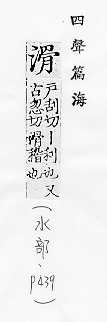 四聲篇海
滑
戶刮切丨利也又
古忽切滑稽也
(水部、p439)